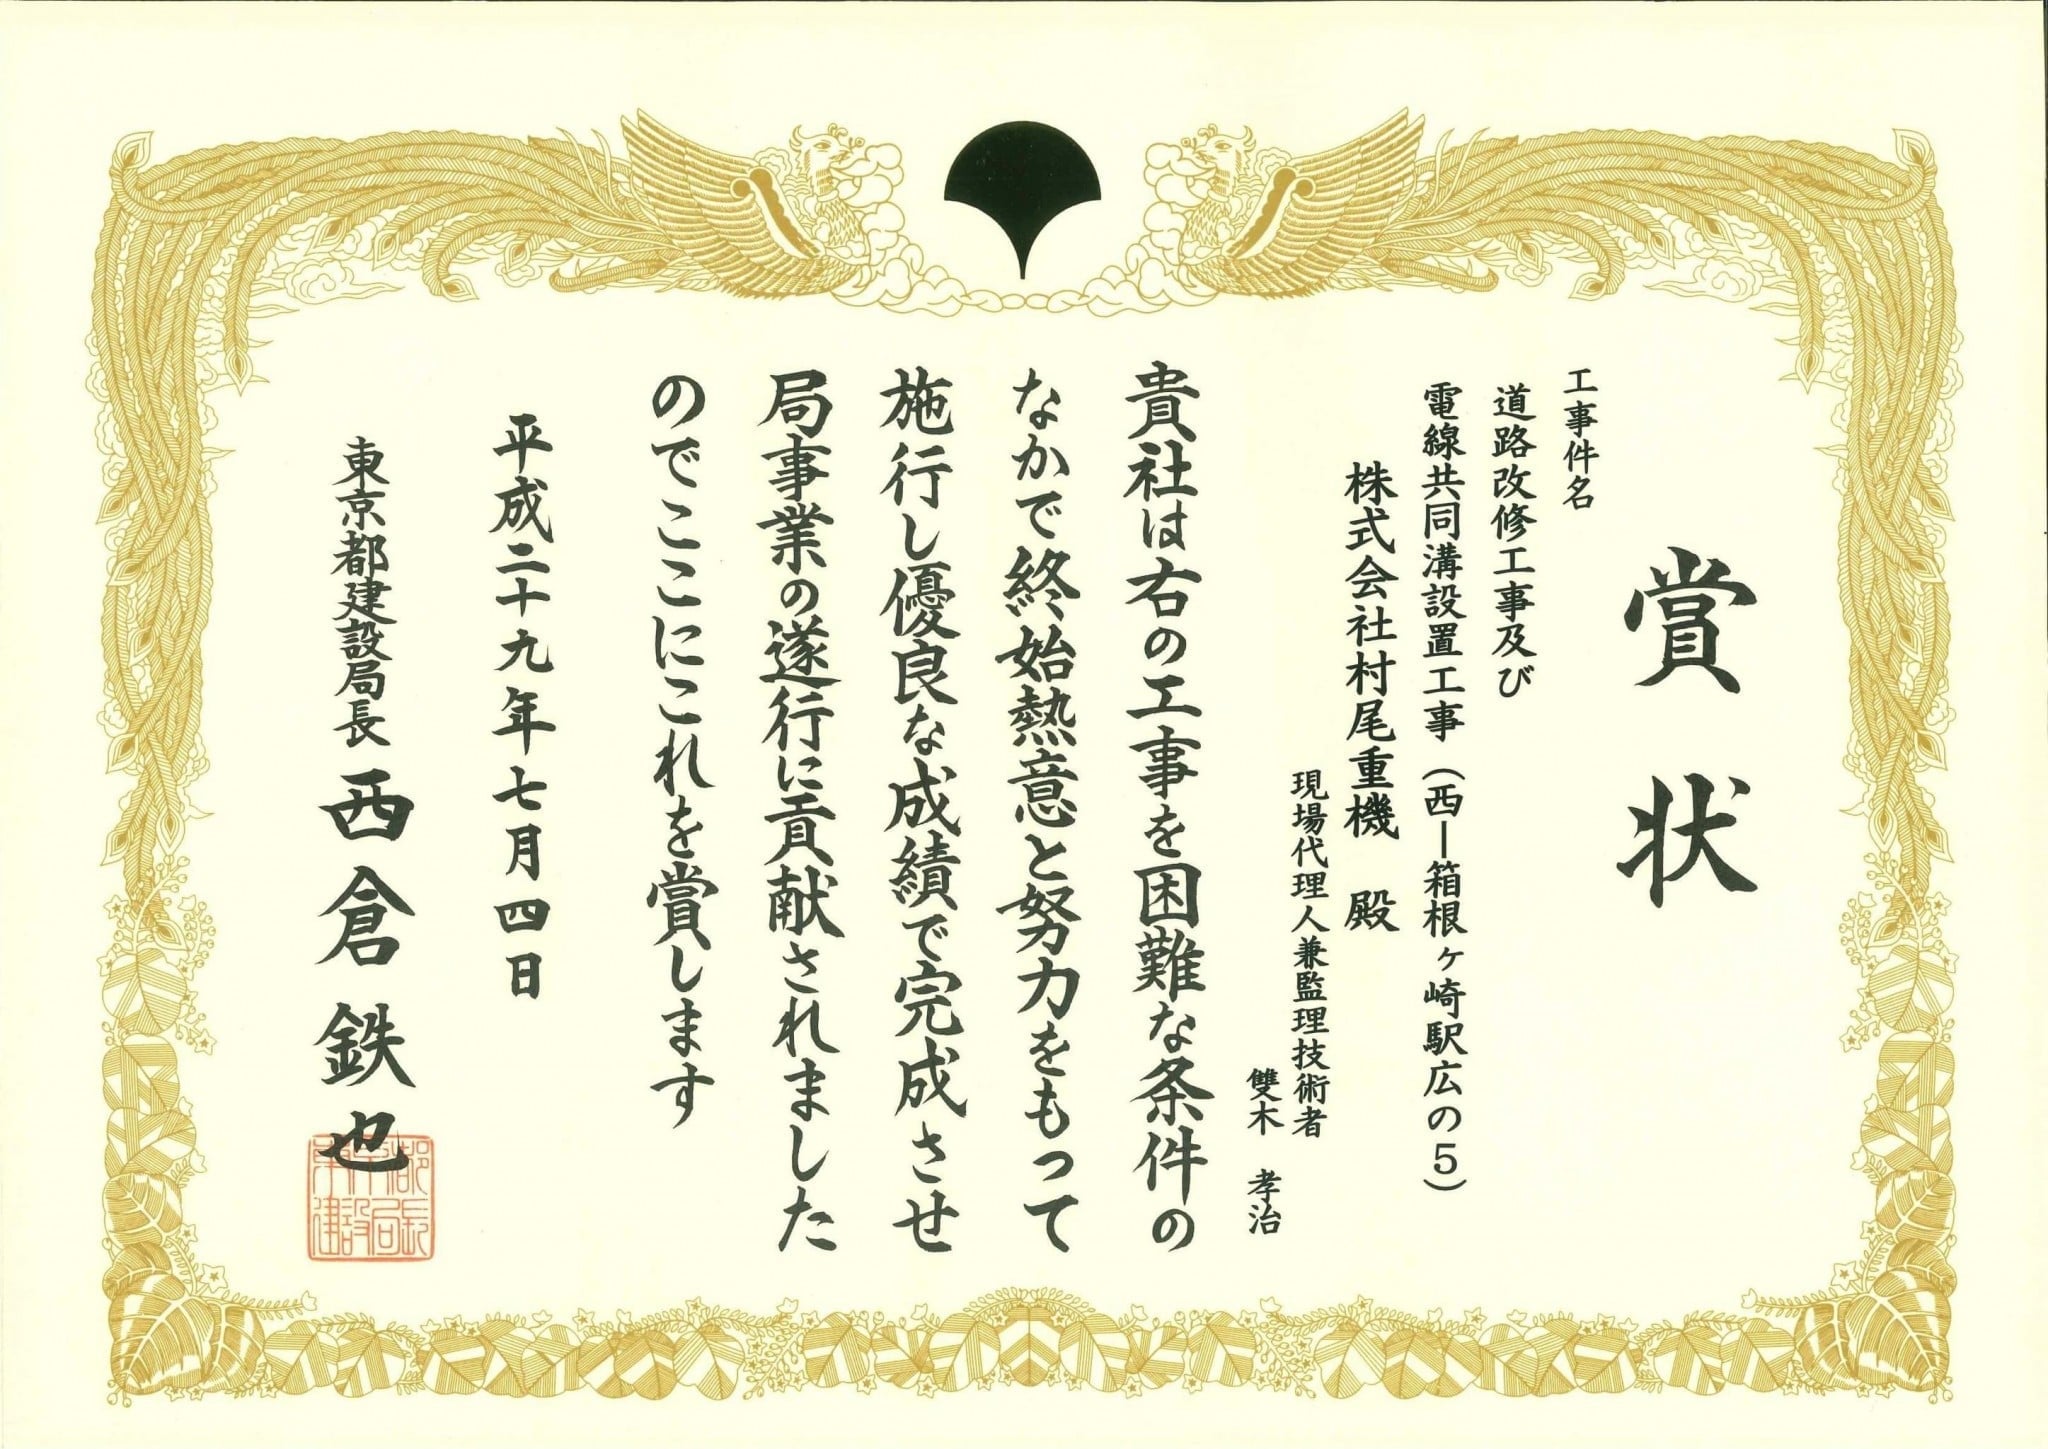 賞状
工事件名
道路改修工事及び
電線共同溝設置工事（西―箱根ヶ崎駅広の５）
株式会社村尾重機　殿
現場代理人兼監理技術者
雙木　孝治
貴社は右の工事を困難な条件の
なかで終始熱意と努力をもって
施行し優良な成績で完成させ
局事業の遂行に貢献されました
のでここにこれを賞します
平成二十九年七月四日
東京都建設局長　西倉鉄也
東京都建設局長